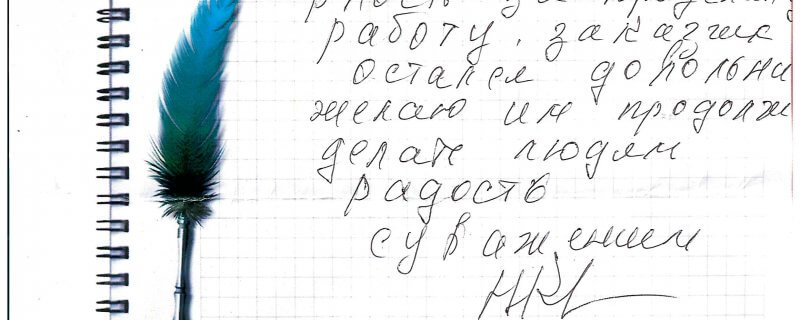 работу, заказчик
остался довольны
желаю им продолж
делать людям
радость
с уважением